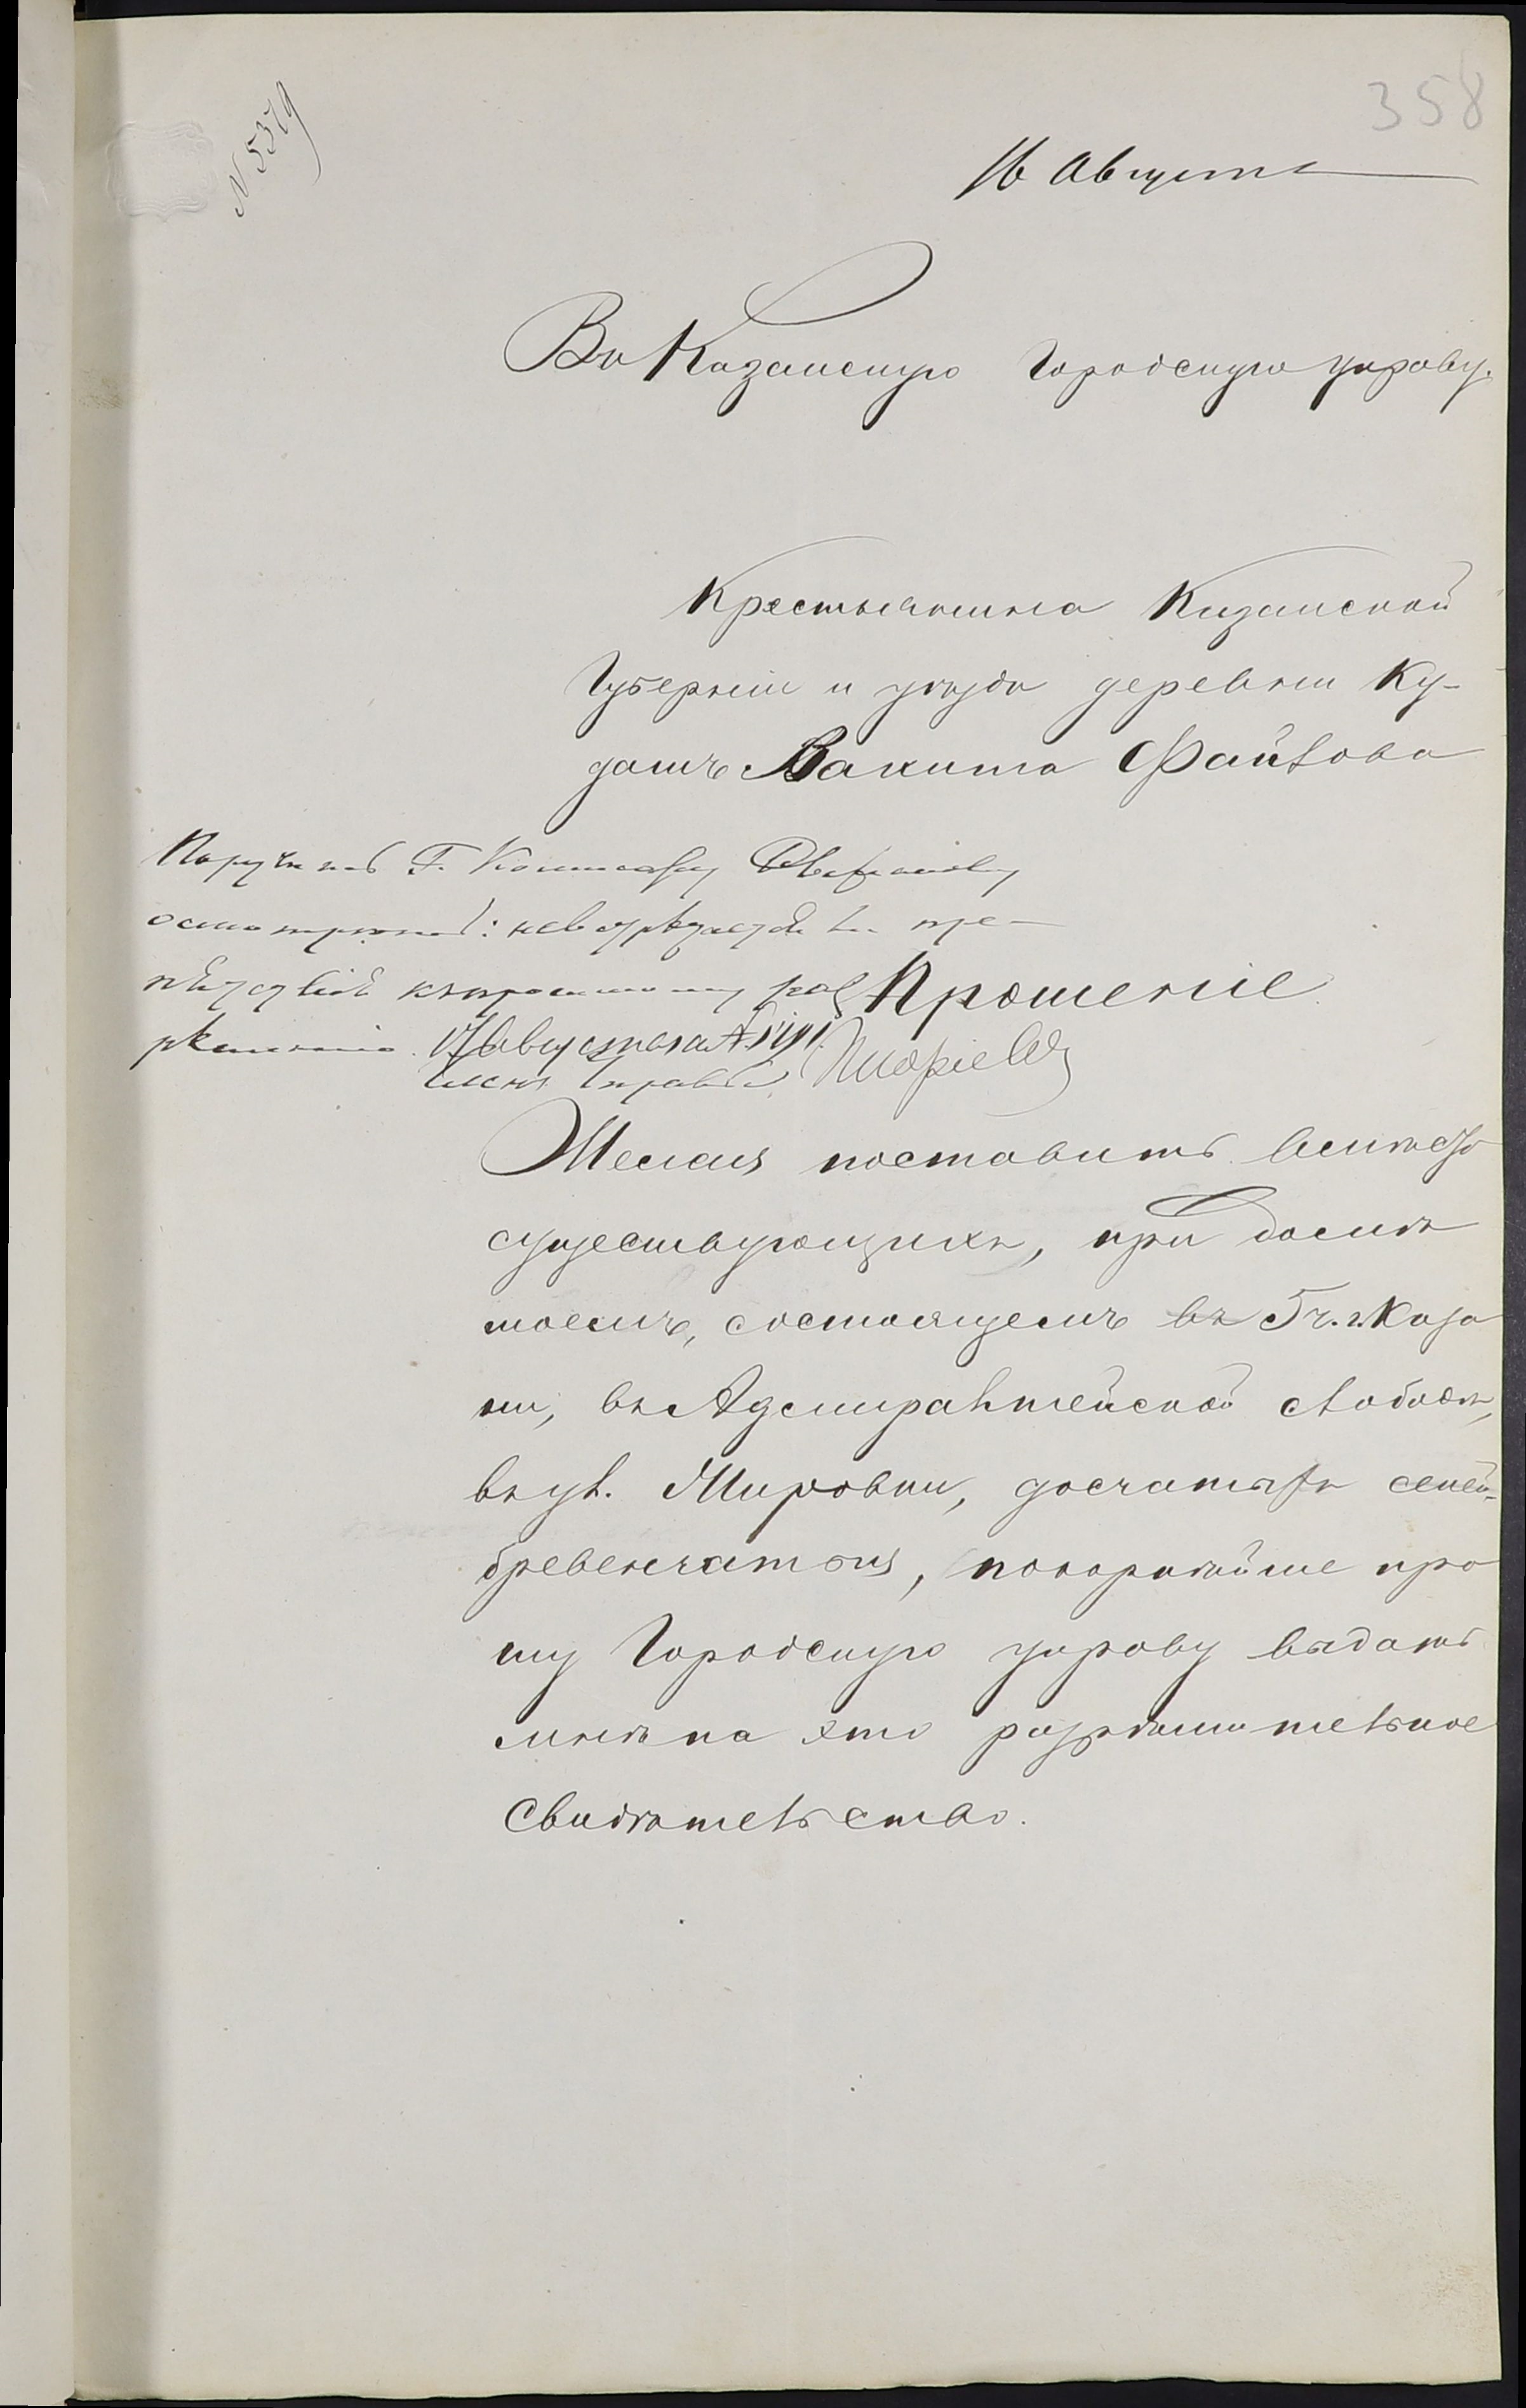 358
N 5379
16 Августа
Въ Казанскую Городскую управу.
Крестьянина Казанской
Губерніи и уѣзда деревни Ку-
дашъ Вакита Файзова
Поручить Г.
осмотрѣть: не встрѣчается ли пре-
пятствій къ просимому раз
рѣшенію. 17 Августа
Членъ Управы
Прошеніе
Желая поставить вместо
существующихъ, при домѣ
моемъ, состоящемъ въ 5 ч. г. Каза
ни, въ Адмиралтейской слободѣ,
въ ул. Мировки, досчатыхъ сеней
бревенчатыя, покорнѣйше про
шу Городскую управу выдать
мнѣ на это разрѣшительное
свидѣтельство.